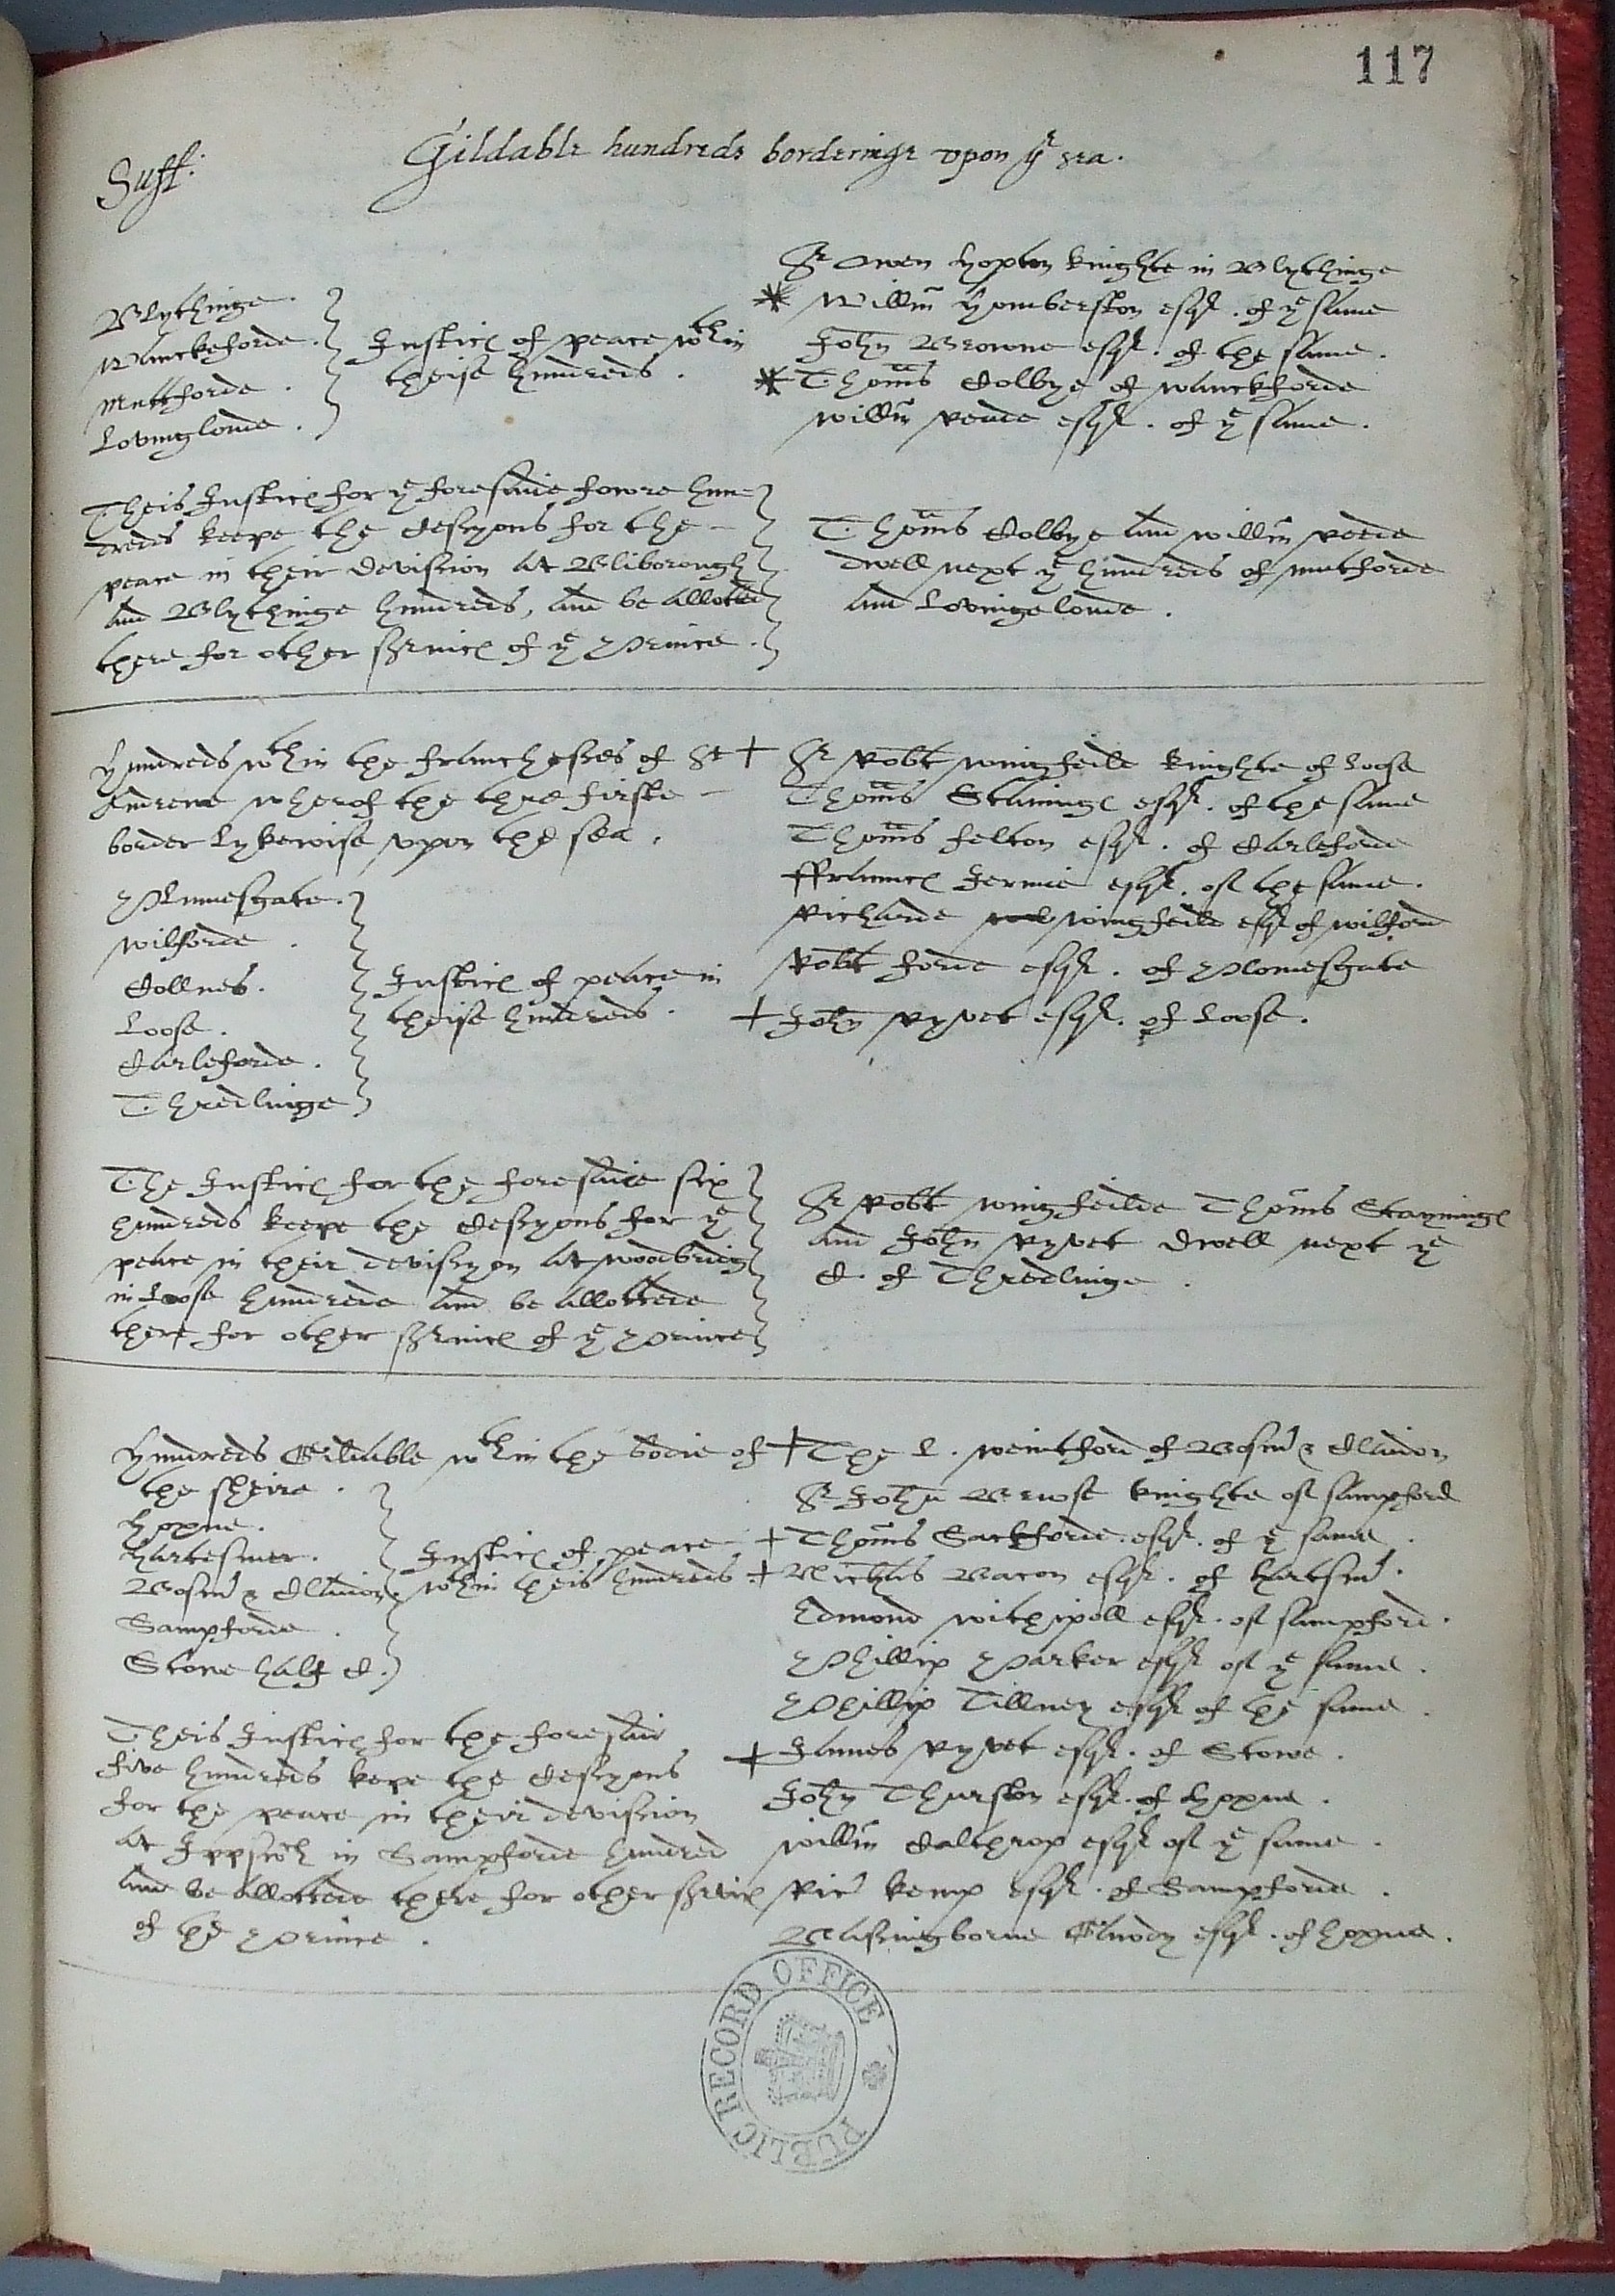 117
Suff:
Gildable hundreds borderinge vpon yͤ sea.
Blythinge.
Wanckeforde.
Mutforde.
Lovinglonde.
Justic of peace wᵗʰin
theise hundreds.
Sʳ Owen Hopton knighte in Blythinge
* Willm̄ Homberston esqʳ. of yͤ same
John Browne esqʳ. of the same.
* Thom̄s Colbye of Wanckforde
Willm̄ Rede esqʳ. of yͤ same.
Theis Justic for yͤ foresaide fowre hun=
dreds keepe the Cessyons for the –
peace in their devission at Bliborough
and Blythinge hundreds, and be allotted
there for other servic of yͤ Prince.
Thom̄s Colbye and Willm̄ Rede
dwell next yͤ hundreds of Mutforde
and Lovingelonde.
Hundreds wᵗʰin the franchesses of Sᵗ
Audrene wherof the thre firste –
border lykewise vpon the sea.
Plumesgate.
Wilforde.
Collnes.
Loose.
Carleforde.
Thredlinge
Justic of peace in
theise hundreds.
+ Sʳ Robt Wingfeild knighte of Loose
Thom̄s Stanninge esqʳ. of the same
Thom̄s Felton esqʳ. of Carleforde
Ffraunc Jermie esqʳ. of the same.
Richarde Wingfeild esqʳ of Wilford
Robt Forde esqʳ. of Plomesgate
+ John Ryvet esqʳ. of Loose.
The Justic for the foresaide six
hundreds keepe the Cessyons for yͤ
peace in their devissyon at Woodbridg
in Loose hundrede and be allottede
there for other servic of yͤ Prince
Sʳ Robt Wingfeilde Thom̄s Stanninge
and John Ryvet dwell next yͤ
C. of Thredlinge.
Hundreds Gildable wᵗʰin the bodie of
the sheire.
Hoxne.
Hartesmer.
Bosm̄ & Claidon
Sampforde.
Stowe half C.
Justic of peace
wᵗʰin theis hundreds.
+ The L. Wentford of Bosm̄ & Claidon
Sʳ John Bruse knighte of Sampford
+ Thom̄s Sackforde esqʳ. of yͤ same.
+ Nichus Bacon esqʳ. of Hartsm̄.
Edmond Withipoll esqʳ. of Sampford.
Phillip Parker esqʳ of yͤ same.
Phillip Tillney esqʳ of the same.
+ James Ryvet esqʳ. of Stowe.
John Thurston esqʳ. of Hoxne.
Willm̄ Calthrop esqʳ of yͤ same.
Ric̄ Kemp esqʳ. of Sampforde.
Bassingborne Gawdy esqʳ. of Hoxne.
Theis Justic for the foresaid
five hundreds kepe the Cessyons
for the peace in their devission
at Ippswᶜʰ in Sampforde hundred
and be allottede there for other servic
of the Prince.
PUBLIC RECORD OFFICE